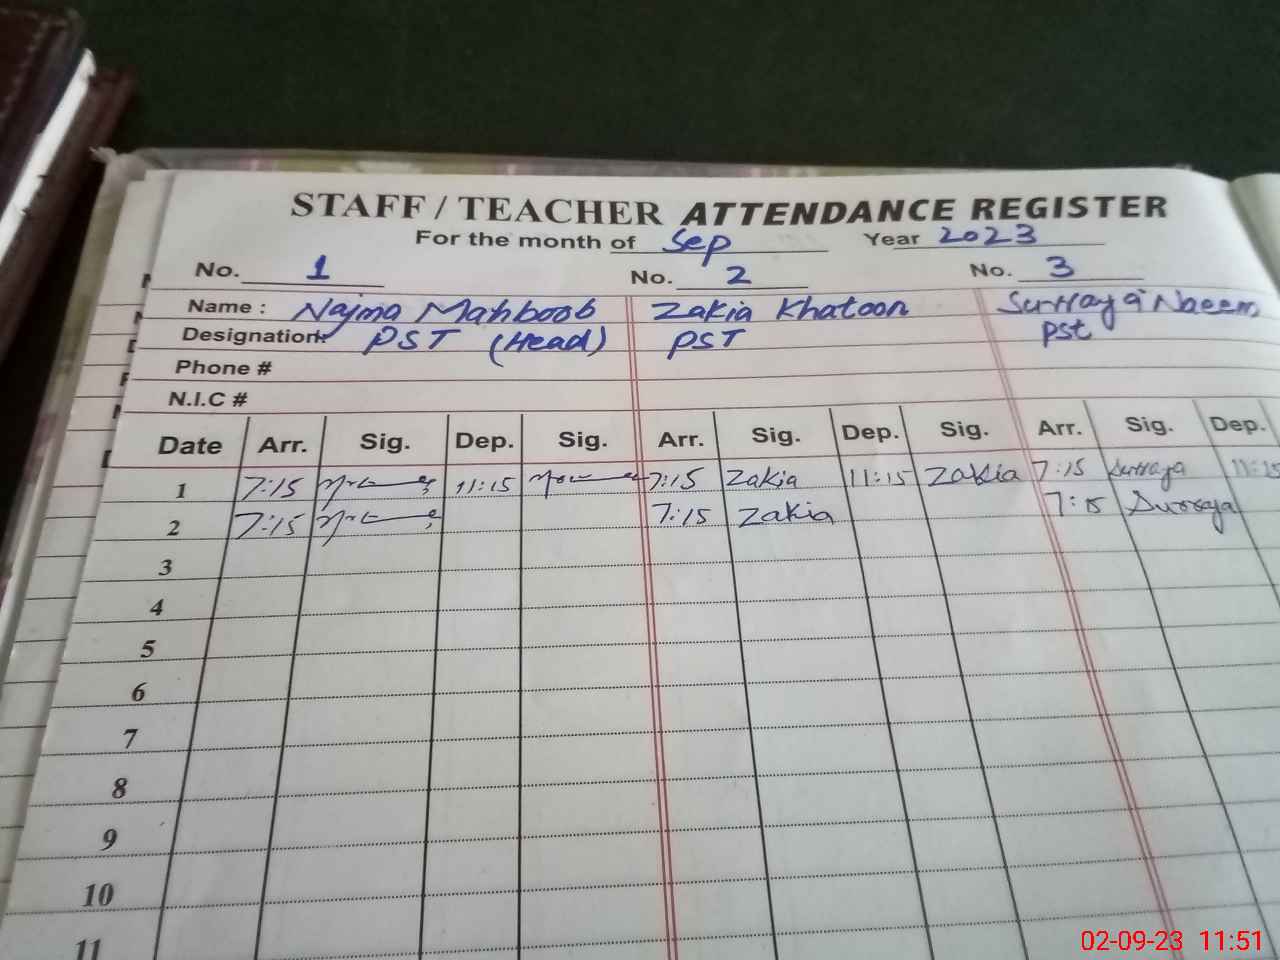 STAFF / TEACHER ATTENDANCE REGISTER
For the month of Sep Year 2023
No. 1 No. 2 No. 3
Name : Najma Mahboob Zakia Khatoon Surraya Naeem
Designation: PST (Head) PST Pst
Phone #
N.I.C #
Date Arr. Sig. Dep. Sig. Arr. Sig. Dep. Sig. Arr. Sig. Dep.
1 7:15 11:15 7:15 Zakia 11:15 Zakia 7:15 Surraya 11:15
2 7:15 7:15 Zakia 7:15 Surraya
3
4
5
6
7
8
9
10
11
02-09-23 11:51